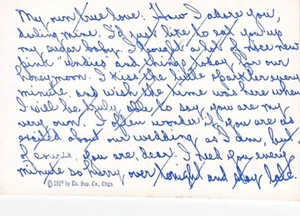 My own true love: How I adore you,
darling mine. I'd just like to eat you up
my sugar baby. I bought a lot of nice new
pink "undies" and things today for our
honeymoon. I kiss the little sparkler every
minute, and wish the time was here when
I will be truly able to say, you are my
very own. I often wonder if you are as
excited about our wedding as I am, but,
of course, you are, dear. I need you every
minute so hurry over tonight and stay late.
by Ex. Sup. Co., Chgo.